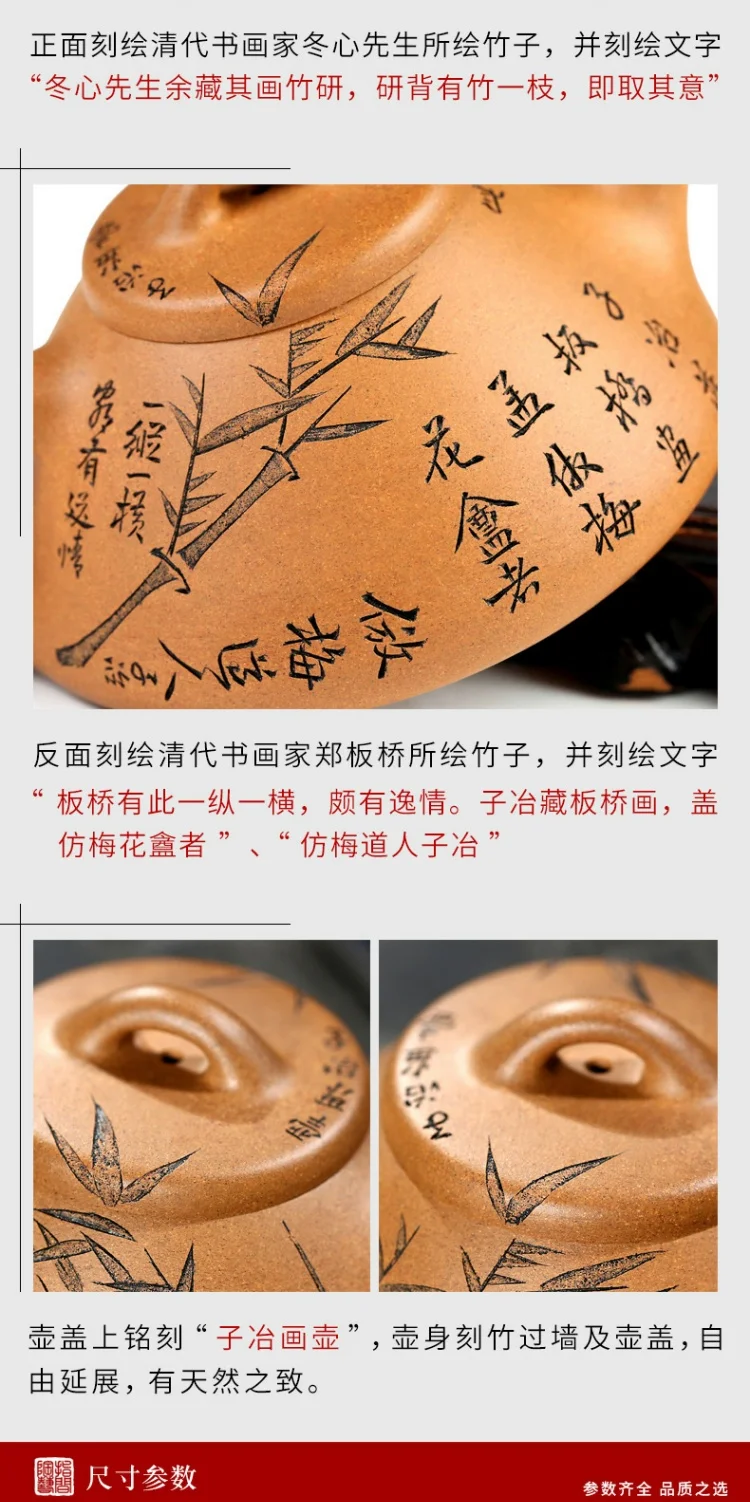 正面刻绘清代书画家冬心先生所绘竹子，并刻绘文字
“冬心先生余藏其画竹研，研背有竹一枝，即取其意”
子
板橋画
盖仿梅
花盦者
仿梅道人
子冶
一縱一横
有逸情
反面刻绘清代书画家郑板桥所绘竹子，并刻绘文字
“板桥有此一纵一横，颇有逸情。子冶藏板桥画，盖
仿梅花盦者”、“仿梅道人子冶”
壶盖上铭刻“子冶画壶”，壶身刻竹过墙及壶盖，自
由延展，有天然之致。
尺寸参数
参数齐全 品质之选